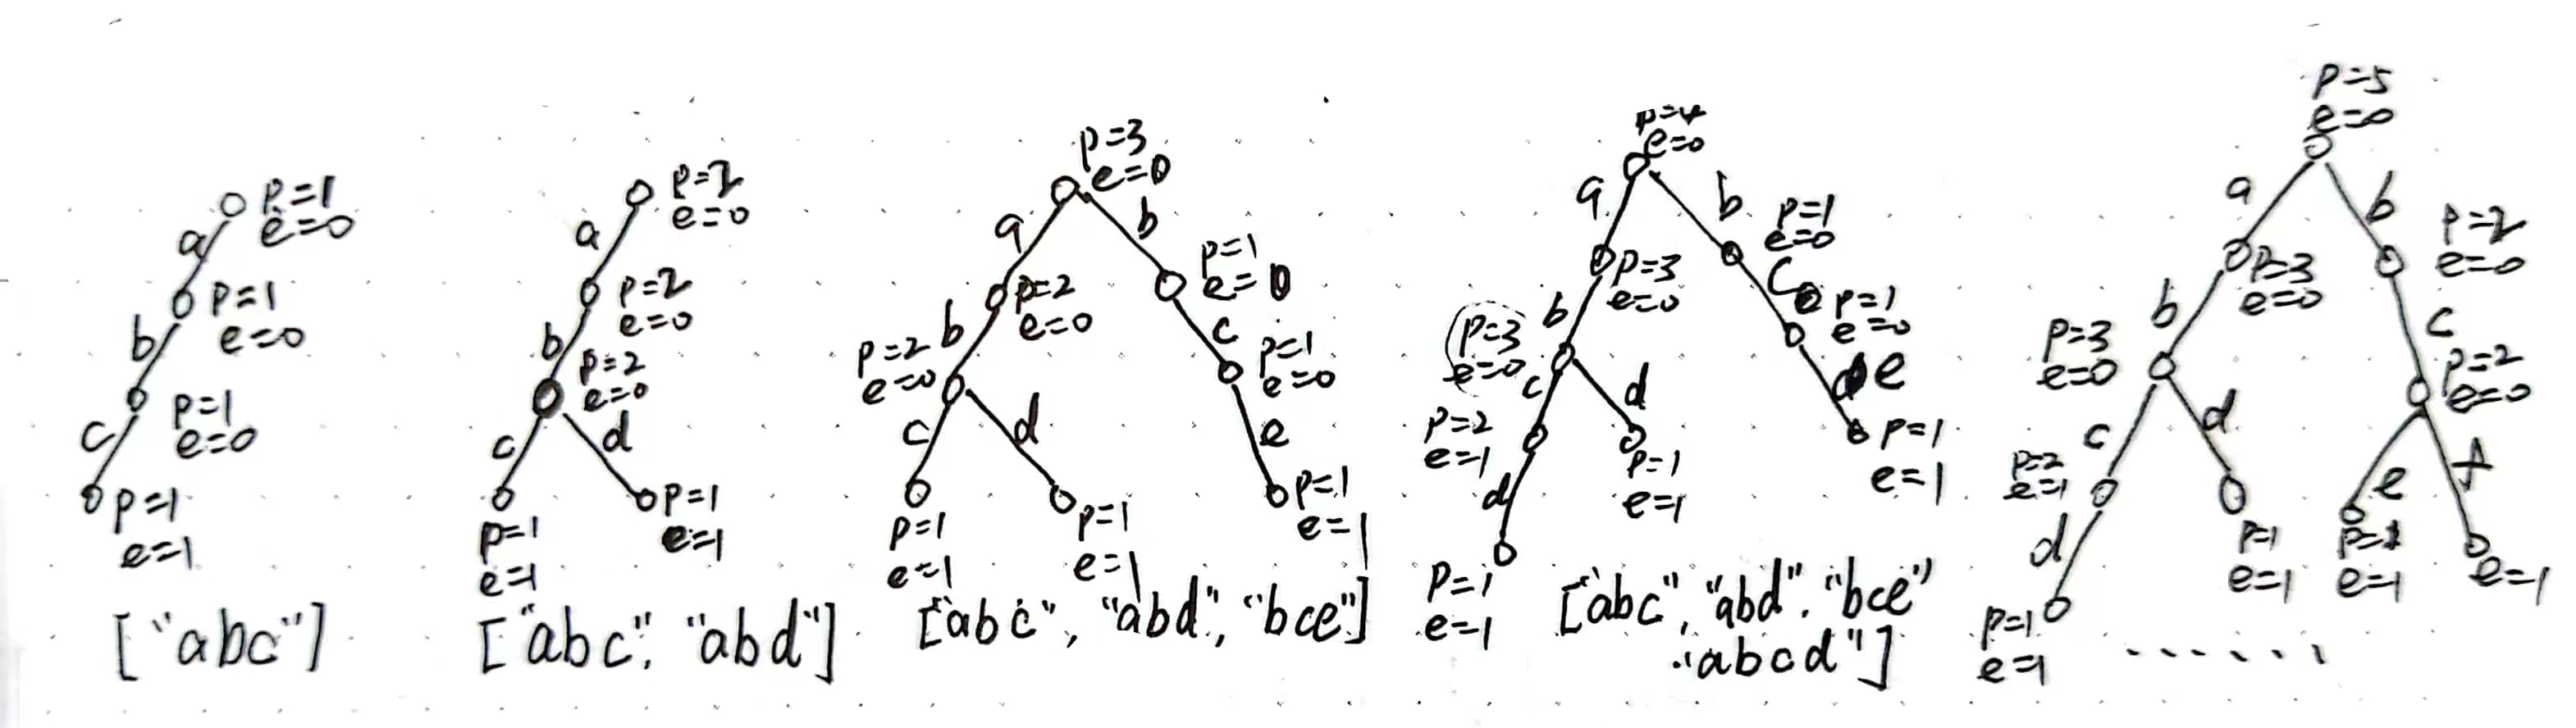 p=1
e=0
a
p=1
e=0
b
p=1
e=0
c
p=1
e=1
["abc"]
p=2
e=0
a
p=2
e=0
b
p=2
e=0
c
d
p=1
e=1
p=1
e=1
["abc", "abd"]
p=3
e=0
a
b
p=2
e=0
p=1
e=0
b
c
p=2
e=0
p=1
e=0
c
d
e
p=1
e=1
p=1
e=1
p=1
e=1
["abc", "abd", "bce"]
p=4
e=0
a
b
p=3
e=0
p=1
e=0
b
c
p=3
e=0
p=1
e=0
c
d
e
p=2
e=1
p=1
e=1
p=1
e=1
d
p=1
e=1
["abc", "abd", "bce"
"abcd"]
p=5
e=0
a
b
p=3
e=0
p=2
e=0
b
c
p=3
e=0
p=2
e=0
c
d
e
f
p=2
e=1
p=1
e=1
p=1
e=1
e=1
d
p=1
e=1
......